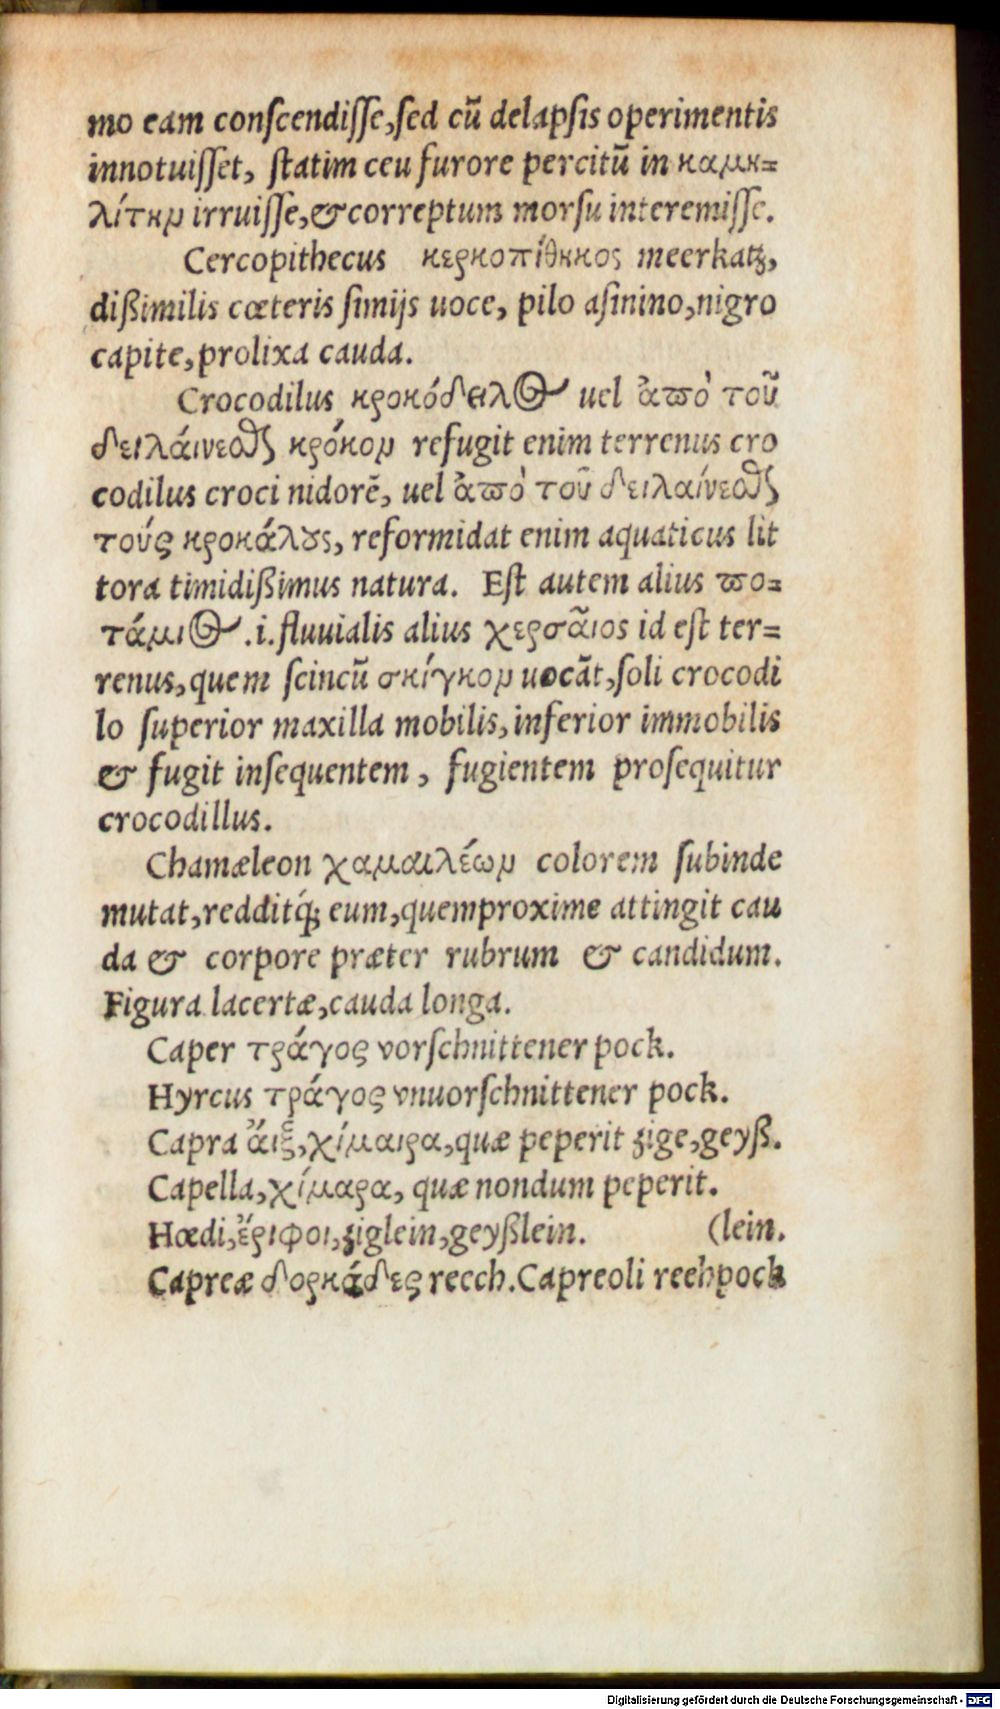 mo eam conſcendiſſe,ſed cũ delapſis operimentis
innotuiſſet, ſtatim ceu furore percitũ in καμη=
λίτην irruiſſe,&correptum morsu interemiſſe.
Cercopithecus κερκοπίθηκος meerkatz,
dißimilis cæteris ſimijs uoce, pilo aſinino,nigro
capite,prolixa cauda.
Crocodilus κροκόδειλος uel ἀπὸ τοῦ
δειλάινεσθαι κρόκον refugit enim terrenus cro
codilus croci nidorẽ, uel ἀπὸ τοῦ δειλαίνεσθαι
τούς κροκάλους, reformidat enim aquaticus lit
tora timidißimus natura. Eſt autem alius πο=
τάμιος .i. fluuialis alius χερσᾶιος id eſt ter=
renus,quem ſcincũ σκίγκον uocãt,ſoli crocodi
lo ſuperior maxilla mobilis,inferior immobilis
& fugit inſequentem, fugientem proſequitur
crocodillus.
Chamæleon χαμαιλέων colorem ſubinde
mutat,redditq́; eum,quemproxime attingit cau
da & corpore præter rubrum & candidum.
Figura lacertæ,cauda longa.
Caper τράγος vorſchnittener pock.
Hyrcus τράγος vnuorſchnittener pock.
Capra ἄιξ,χίμαιρα,quæ peperit zige,geyß.
Capella,χίμαρα, quæ nondum peperit.
Hœdi,ἔριφοι,ziglein,geyßlein. (lein.
Capreæ δορκάδες recch.Capreoli reehpock
Digitalisierung gefördert durch die Deutsche Forschungsgemeinschaft - DFG